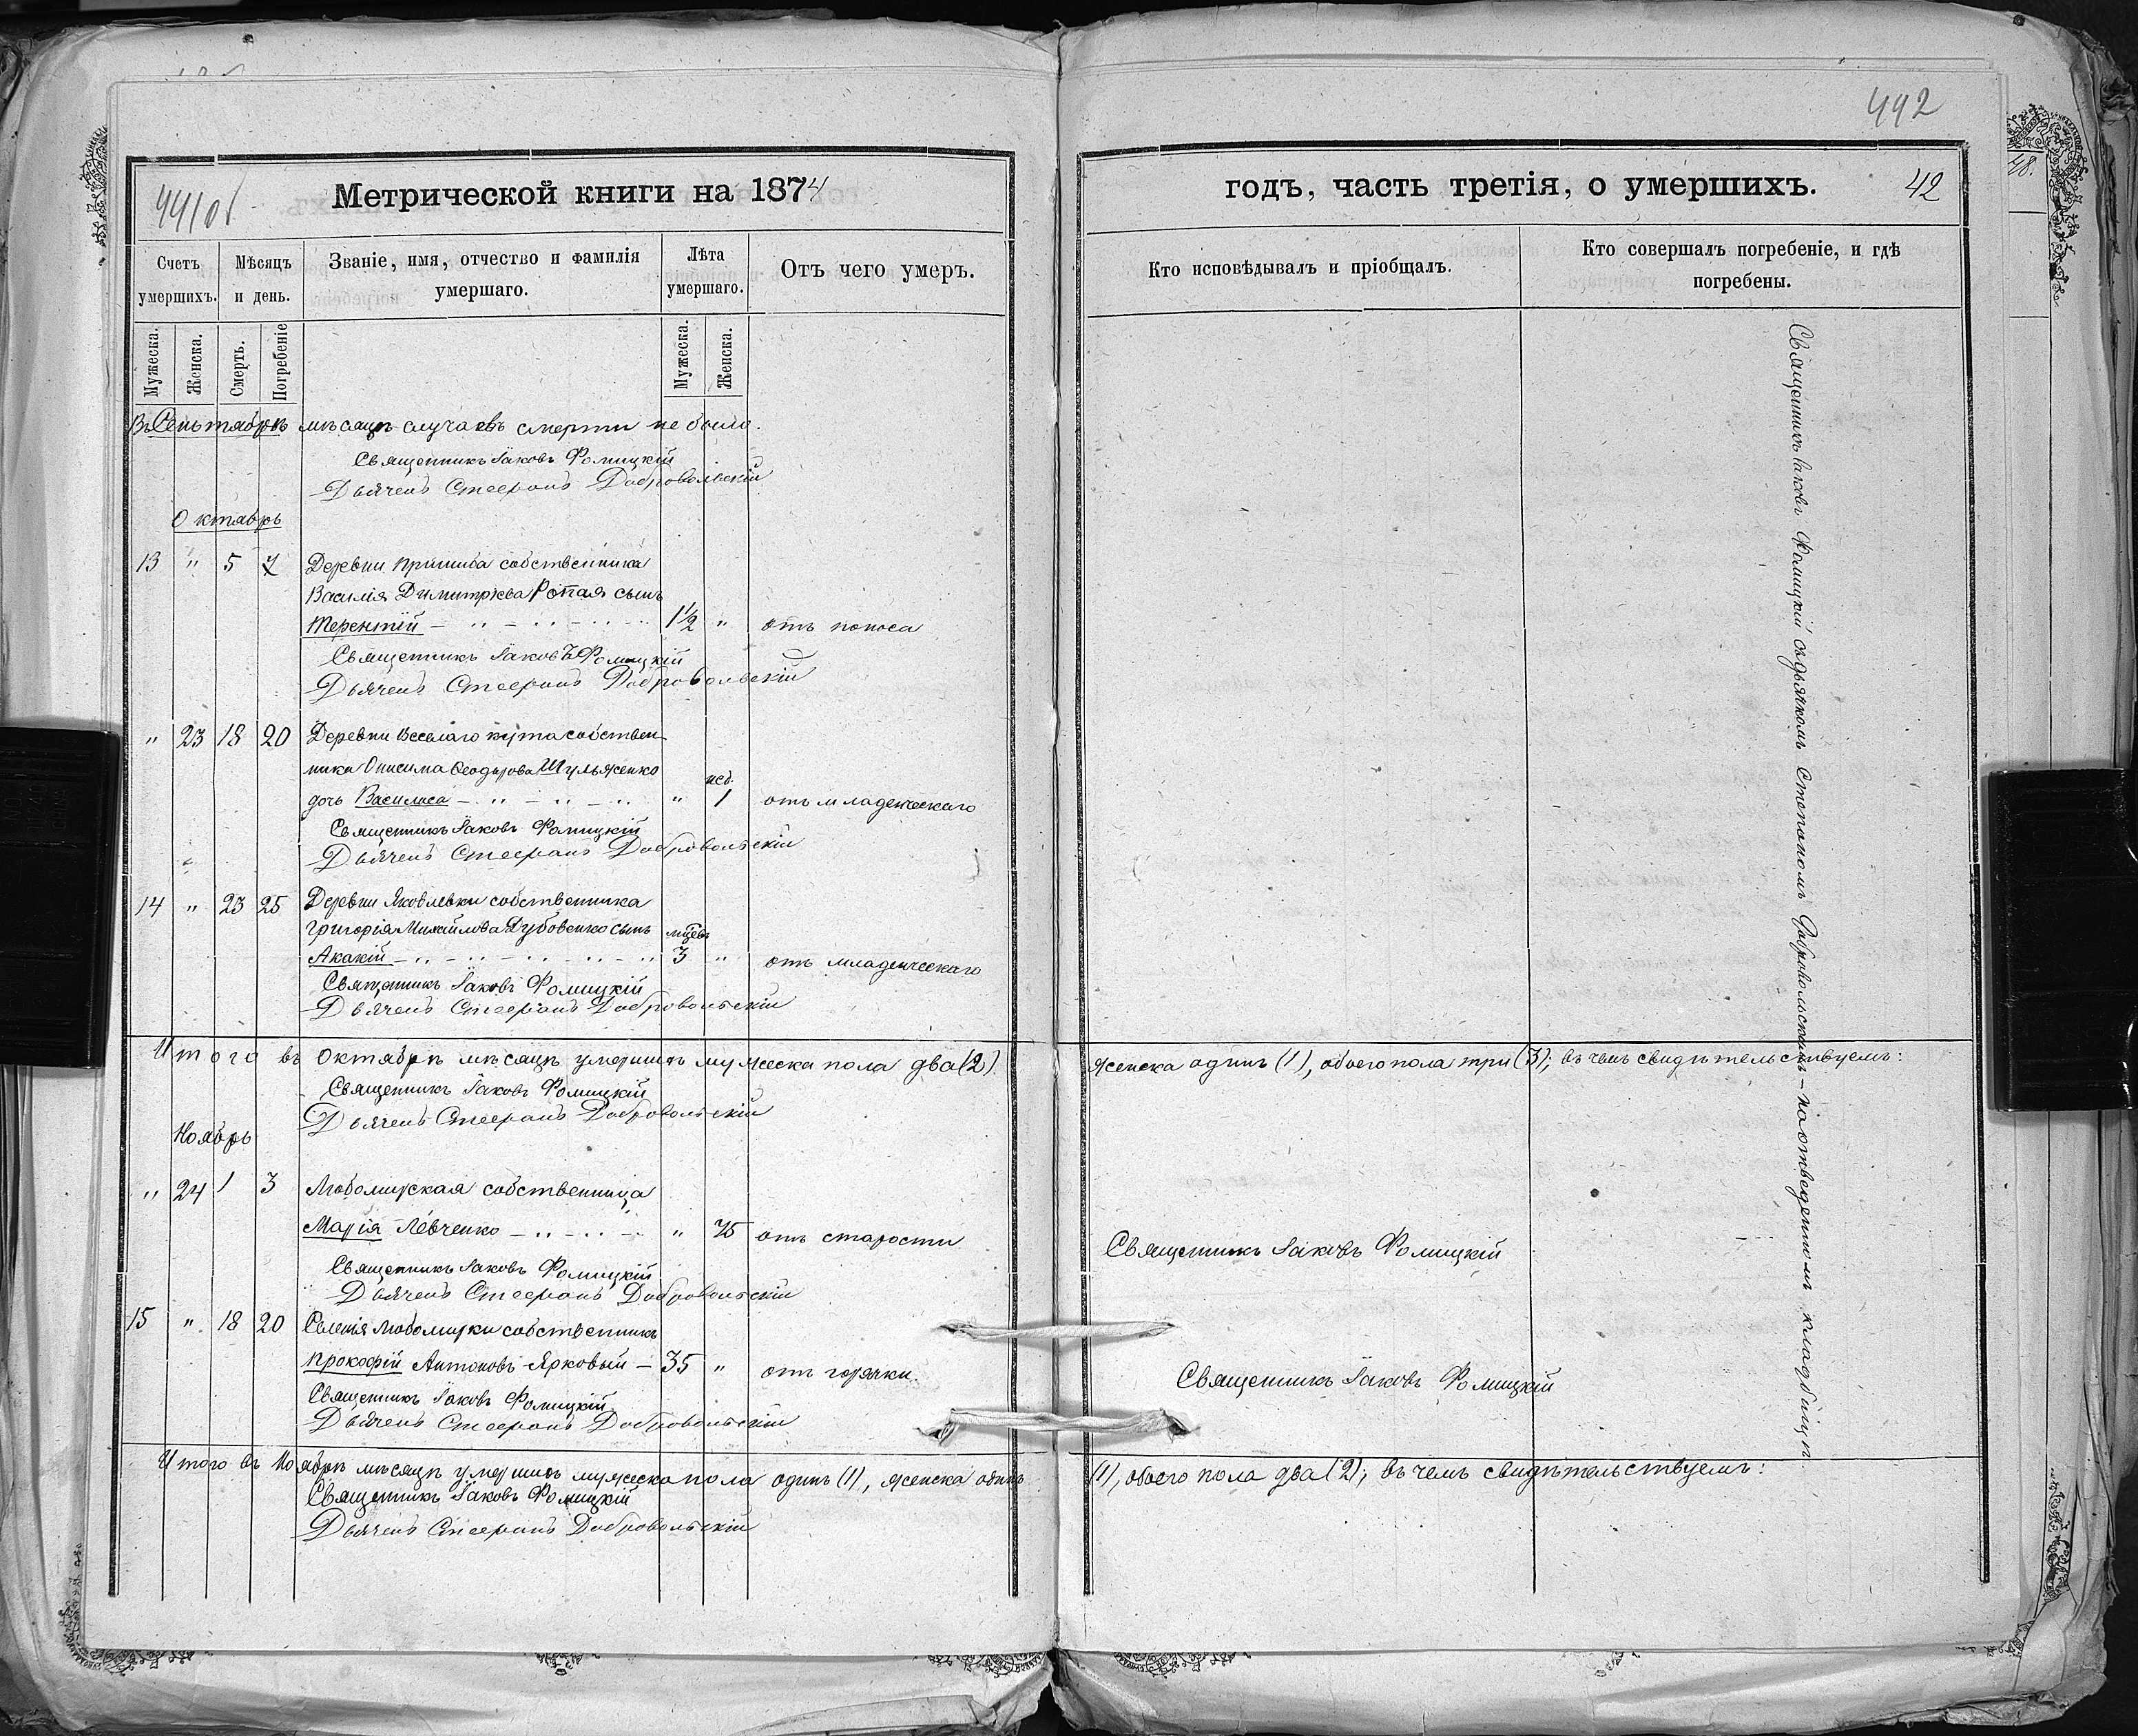 442
441об
Метрической книги на 1874
годъ, часть третія, о умершихъ.
42
48.
Счетъ умершихъ.
Мѣсяцъ и день.
Званіе, имя, отчество и фамилія умершаго.
Лѣта умершаго.
Отъ чего умеръ.
Кто исповѣдывалъ и пріобщалъ.
Кто совершалъ погребеніе, и гдѣ погребены.
Мужеска.
Женска.
Смерть.
Погребеніе
Мужеска.
Женска.
Въ Сентябрѣ мѣсяцѣ случаевъ смерти не было.
Священникъ Іаковъ Фомицкій
Дьячекъ Стефанъ Добровольскій
Октябрь
13 " 5 7 Деревни Пришиба собственника
Василія Димитріева Ропая сынъ
Терентій 1½ " отъ поноса
Священникъ Іаковъ Фомицкій
Дьячекъ Стефанъ Добровольскій
" 23 18 20 Деревни Веселаго кута собствен
ника Онисима Ѳеодорова Шульженко
нед.
дочь Василиса " 1 отъ младенческаго
Священникъ Іаковъ Фомицкій
Дьячекъ Стефанъ Добровольскій
14 " 23 25 Деревни Яковлевки собственника
Григорія Михайлова Дубовенко сынъ мцев
Акакій 3 " отъ младенческаго
Священникъ Іаковъ Фомицкій
Дьячекъ Стефанъ Добровольскій
Итого въ Октябрѣ мѣсяцѣ умершихъ мужеска пола два (2)
женска одинъ (1), обоего пола три (3); въ чемъ свидѣтельствуемъ:
Священникъ Іаковъ Фомицкій
Дьячекъ Стефанъ Добровольскій
Ноябрь
" 24 1 3 Любомирская собственница
Марія Левченко " 75 отъ старости
Священникъ Іаковъ Фомицкій
Священникъ Іаковъ Фомицкій
Дьячекъ Стефанъ Добровольскій
15 " 18 20 Селенія Любомирки собственникъ
Прокофій Антоновъ Ярковый 35 " отъ горячки.
Священникъ Іаковъ Фомицкій
Священникъ Іаковъ Фомицкій
Дьячекъ Стефанъ Добровольскій
Итого въ Ноябрѣ мѣсяцѣ умершихъ мужеска пола одинъ (1), женска одинъ
(1), обоего пола два (2); въ чемъ свидѣтельствуемъ:
Священникъ Іаковъ Фомицкій
Дьячекъ Стефанъ Добровольскій
Священникъ Іаковъ Фомицкій съ дьякомъ Стефаномъ Добровольскимъ – на отведенномъ кладбищѣ